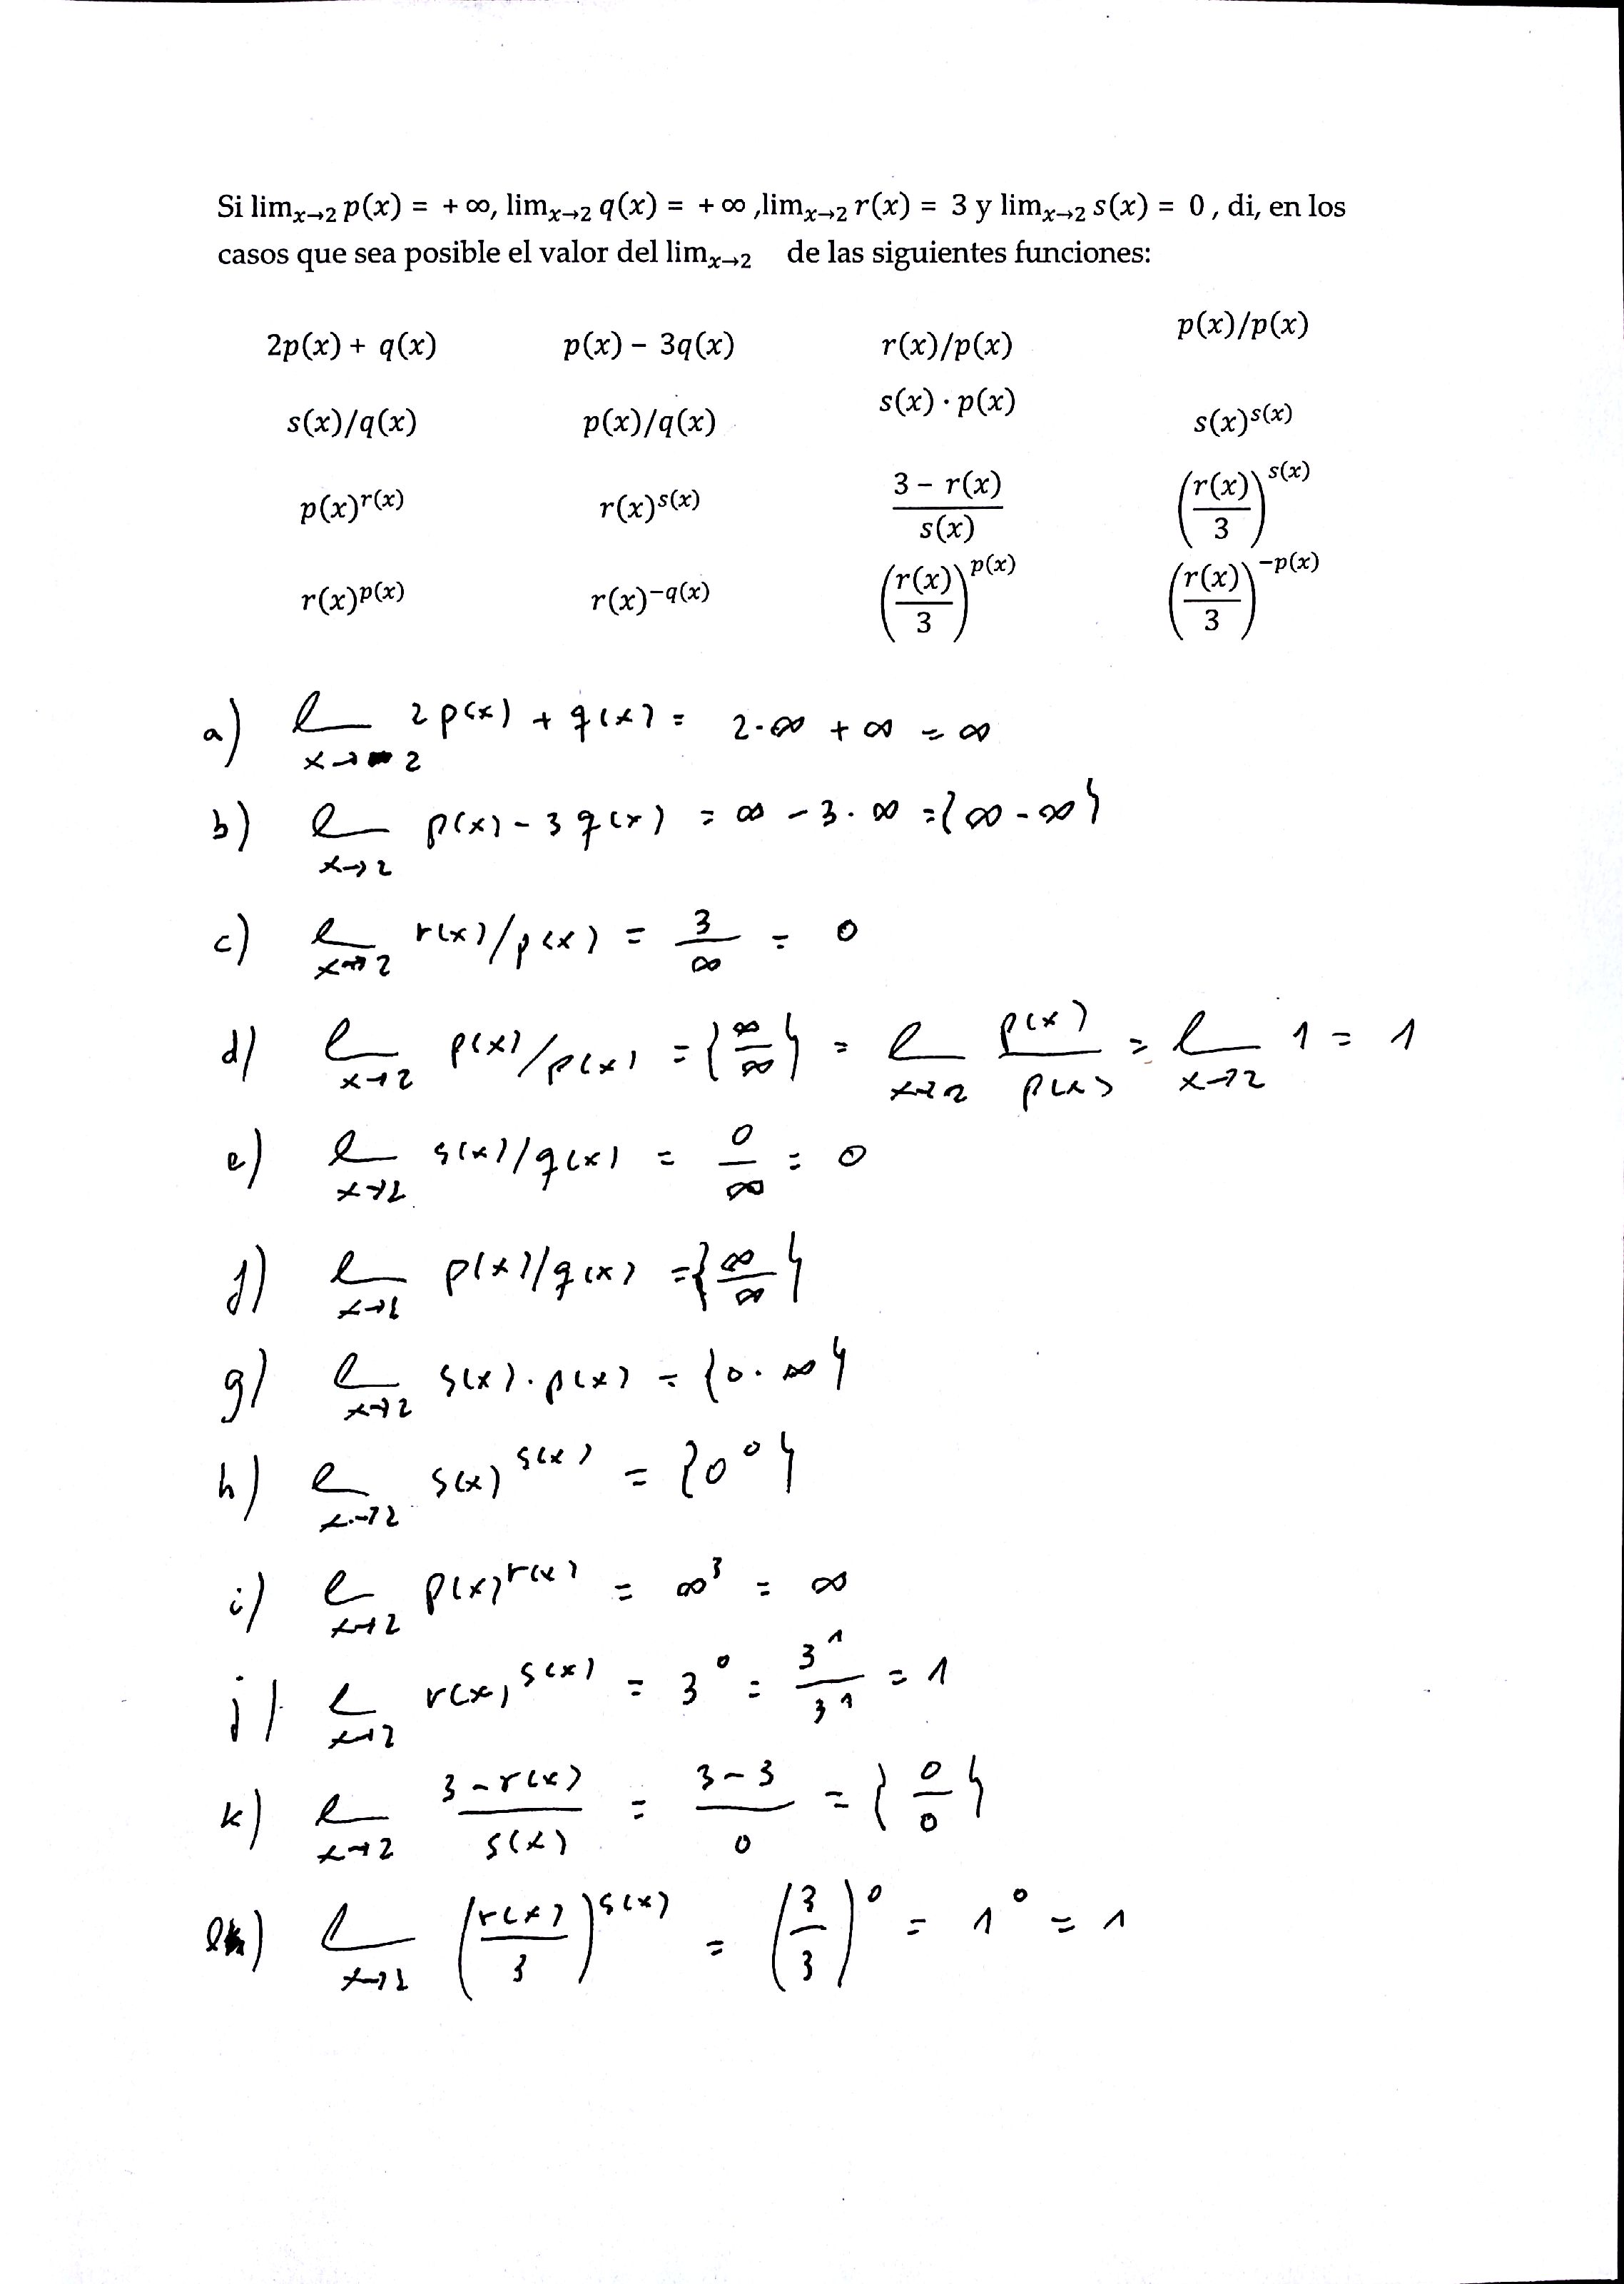 Si lim_{x→2} p(x) = +∞, lim_{x→2} q(x) = +∞ ,lim_{x→2} r(x) = 3 y lim_{x→2} s(x) = 0 , di, en los
casos que sea posible el valor del lim_{x→2} de las siguientes funciones:
2p(x) + q(x) p(x) − 3q(x) r(x)/p(x) p(x)/p(x)
s(x)/q(x) p(x)/q(x) s(x) · p(x) s(x)^{s(x)}
p(x)^{r(x)} r(x)^{s(x)} \frac{3 − r(x)}{s(x)} \left(\frac{r(x)}{3}\right)^{s(x)}
r(x)^{p(x)} r(x)^{−q(x)} \left(\frac{r(x)}{3}\right)^{p(x)} \left(\frac{r(x)}{3}\right)^{−p(x)}
a) l_{x→2} 2p(x) + q(x) = 2·∞ + ∞ = ∞
b) l_{x→2} p(x) − 3q(x) = ∞ − 3·∞ = {∞ − ∞}
c) l_{x→2} r(x)/p(x) = \frac{3}{∞} = 0
d) l_{x→2} p(x)/p(x) = {\frac{∞}{∞}} = l_{x→2} \frac{p(x)}{p(x)} = l_{x→2} 1 = 1
e) l_{x→2} s(x)/q(x) = \frac{0}{∞} = 0
f) l_{x→2} p(x)/q(x) = {\frac{∞}{∞}}
g) l_{x→2} s(x)·p(x) = {0·∞}
h) l_{x→2} s(x)^{s(x)} = {0^0}
i) l_{x→2} p(x)^{r(x)} = ∞^3 = ∞
j) l_{x→2} r(x)^{s(x)} = 3^0 = \frac{3^1}{3^1} = 1
k) l_{x→2} \frac{3 − r(x)}{s(x)} = \frac{3 − 3}{0} = {\frac{0}{0}}
l) l_{x→2} \left(\frac{r(x)}{3}\right)^{s(x)} = \left(\frac{3}{3}\right)^0 = 1^0 = 1